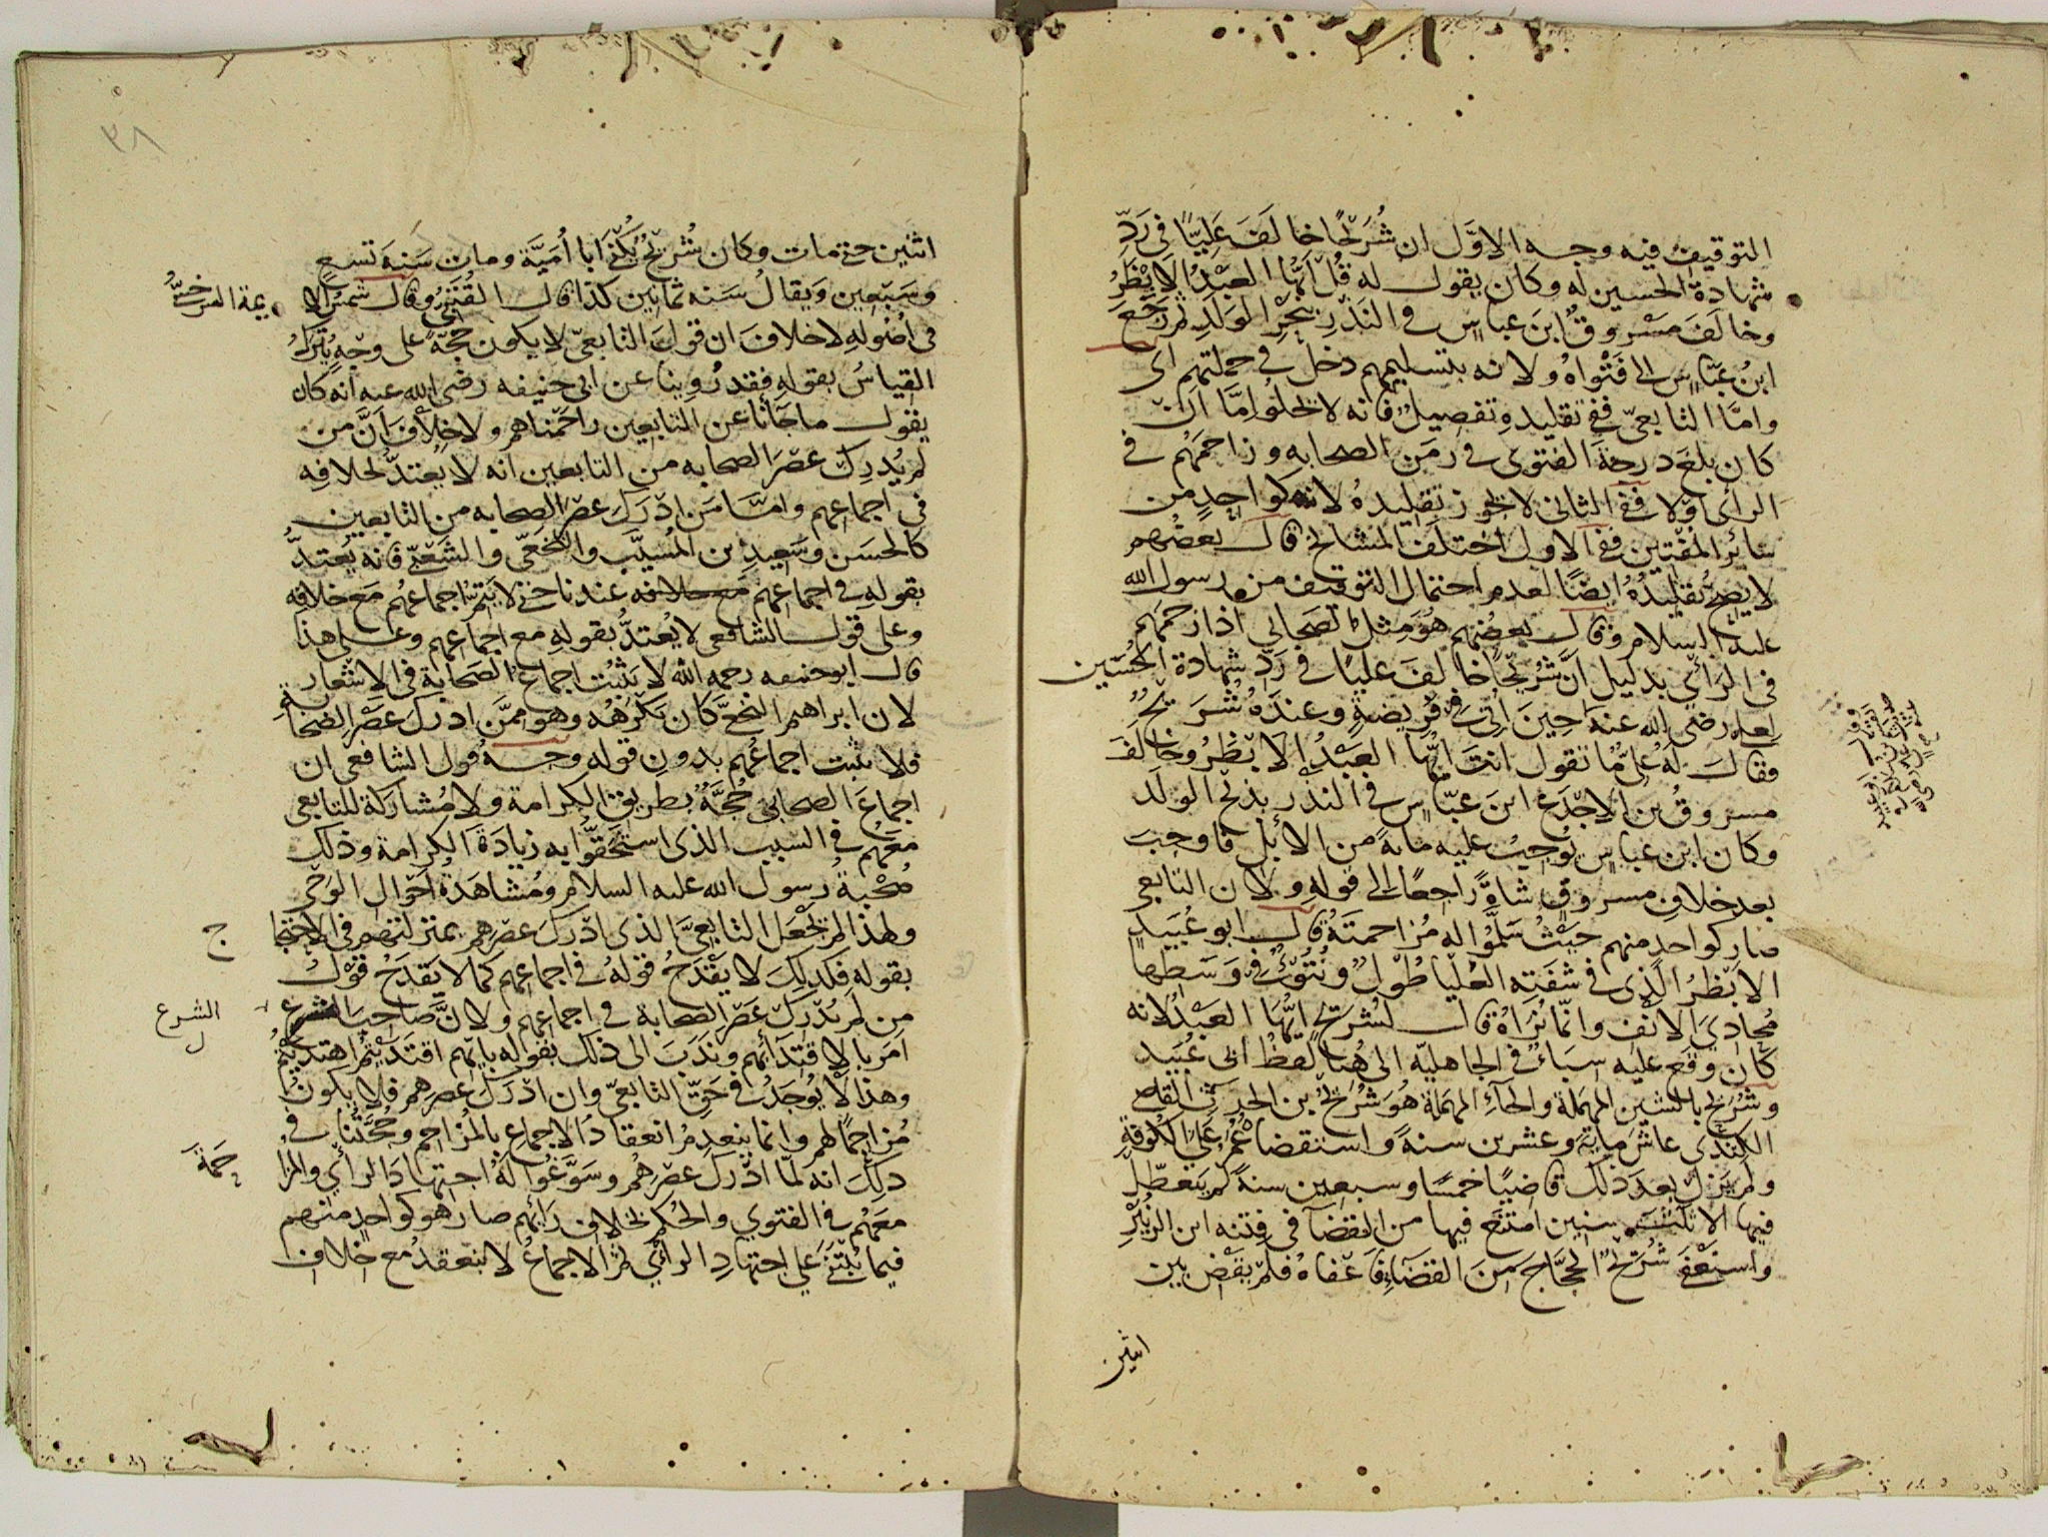 التوقيف فيه وجه الاول ان شُرَيْحًا خالَفَ عَلِيًّا في رَدِّ
شهادة الحسين له وكان يقول له قُلْ ايّها العَبْدُ الابْظَرُ
وخالَفَ مَسْروقٌ ابنَ عباسٍ في النَذْرِ بنَحْرِ الوَلَدِ ثم رَجَعَ
ابنُ عبّاسٍ الى فَتْواهُ ولانه بتسليمهم دخل في جملتهم اى
وامّا التابعىّ ففى تقليده تفصيلٌ فانه لا يخلُو اِمَّا ان
كان بلغ درجةَ الفتوى في زمن الصحابه وزاحمَهُم في
الرأى اولا ففى الثانى لا يجوز تقليدهُ لانه كواحدٍ من
سائر المفتين ففى الاول اختلَفَ المشايخ قال بعضُهم
لا يصِحُّ تقليدُهُ ايضًا لعدم احتمال التوقيف من رسول الله
عليه السلام وقال بعضهم هُوَ مِثلُ الصحابى اذا زاحمَهم
في الرأى بدليل انَّ شُرَيحًا خالَفَ عليًا في رَدّ شهادة الحُسَين
لعلى رضى الله عنه حِينَ اتى في فَريضةٍ وعندَهُ شُرَيحٌ
فقال لَهُ علىٌّ ما تقول انتَ ايُّها العَبْدُ الابْظَرُ وخالفَ
مسروقُ بن الاجْدَع ابنَ عبّاس في النذر بذبح الولَد
وكان ابن عباسٍ يُوجِبُ عليه مايةً من الابل فاوجبَ
بعد خلافِ مسروقٍ شاةً راجعًا الى قولهِ ولان التابعى
صار كواحد منهم حيْثُ سَلّمُوا له مُزاحمتَهُ قال ابو عُبَيد
الابْظرُ الَّذِى في شفَتِه العُليا طُولٌ ونُتوٌّ في وَسَطها
مُحاذىَ الانف وانّما نُراهُ قال لشُرَيح ايُّهَا العَبْدُ لانه
كان وقَعَ عليه سِبَاءٌ في الجاهليّه الى هُنا لفظُ ابى عُبَيد
وشُرَيح بالشين المهملة والحآءِ المهملة هُوَ شُرَيحُ بن الحرث القاضى
الكِندىّ عاش مِايةً وعشرين سنةً واستقضاهُ عُمَرُ عَلَى الكُوفةِ
ولم يَزَلْ بعدَ ذلك قاضيًا خمسًا وسبعين سنةً لم يتعطّلْ
فيها الا ثَلثَ سنين امتنَع فيها من القضآ فى فِتنه ابن الزُبَيرِ
واستَعْفَى شُرَيحٌ الحجَّاجَ مِنَ القضَاءِ فاَعْفاهُ فلم يقضِ بين
اثنين
٣٨
اثنَين حتى مات وكان شُرَيحٌ يُكَنّى اَبا اُمَيَّة ومات سَنَة تسعٍ
وسَبْعين ويقالُ سَنَه ثمانين كذا قال القُتَبىُّ وقال شمسُ الا
يمة السرخسىُّ
فى اُصُولهِ لا خلافَ ان قولَ التابعىّ لا يكون حُجّةً على وَجْهٍ يُترَكُ
القياسُ بقولهِ فقد رُوينا عن ابى حنيفه رضى الله عنه انه كان
يقول ما جآءَنا عن التابعين زاحَمْناهم ولا خِلافَ اَنَّ من
لم يُدرِك عَصْرَ الصحابه من التابعين انه لا يُعتدُّ بخلافِه
فى اجماعهم وامَّا مَن ادْرَكَ عَصْرَ الصحابه من التابعين
كالحسَن وسَعيدِ بن المُسيَّب والنخعى والشَعْبىّ فانه يُعتدُّ
بقولهِ فى اجماعهم مَع خلافه عندنا حتى لا يَتمَّ اجماعهُم مَعَ خلافِه
وعلى قول الشافعى لا يُعتدُّ بقولهِ مع اجماعهم وعلى هذا
قال ابو حنيفه رحمه الله لا يَثبُت اجماعُ الصَحابةِ فى الاشعار
لان ابراهيم النخعىّ كان يَكْرَهُه وهو مِمَّن ادركَ عَصْرَ الصَحابَةِ
فلا يثبت اجماعُهم بدونِ قولهِ وجهُ قول الشافعى ان
اجماعَ الصحابى حُجّةٌ بطريق الكرامة ولا مُشاركةَ للتابعى
معَهُم فى السبب الذى استَحقّوا به زيادَةَ الكرامة وذلك
صُحْبةُ رسول الله عليه السلام ومُشاهدَةُ احْوال الوَحى
ولهذا لم نَجْعَل التابعىَّ الذى ادْرَكَ عصرَهم بمنزلتهم فى الاحتجا
ج
بقوله فكذلِكَ لا يَقْدَحُ قولهُ فى اجماعهم كما لا يَقدَحُ قَوْلُ
من لم يُدْرِكْ عَصْرَ الصحابة فى اجماعهم ولانَّ صاحبَ الشرع
الشرع
اَمَرَ بالاقتِدآءِ بهم ونَدَبَ الى ذلك بقوله بايّهم اقتدَيتُم اهتدَيتُم
وهذا لا يُوجَدُ فى حَقّ التابعىّ وان ادْرَكَ عصرَهم فلا يكونُ
مُزاحِمًا لهم وانما ينعدِمُ انعقادُ الاجماع بالمُزاحم وحُجَّتُنا فى
ذلك انه لمّا ادْرَكَ عصرَهُمْ وسَوَّغُوا لَهُ اجتِهادَ الرأى والمزا
حَمَةَ
معَهُم فى الفتوى والحُكم بخلاف رَايهم صار هو كواحدٍ منهم
فيما يُبْتَنَى عَلى اجتهادِ الرأى ثم الاجماعُ لا ينعقدُ مع خلاف